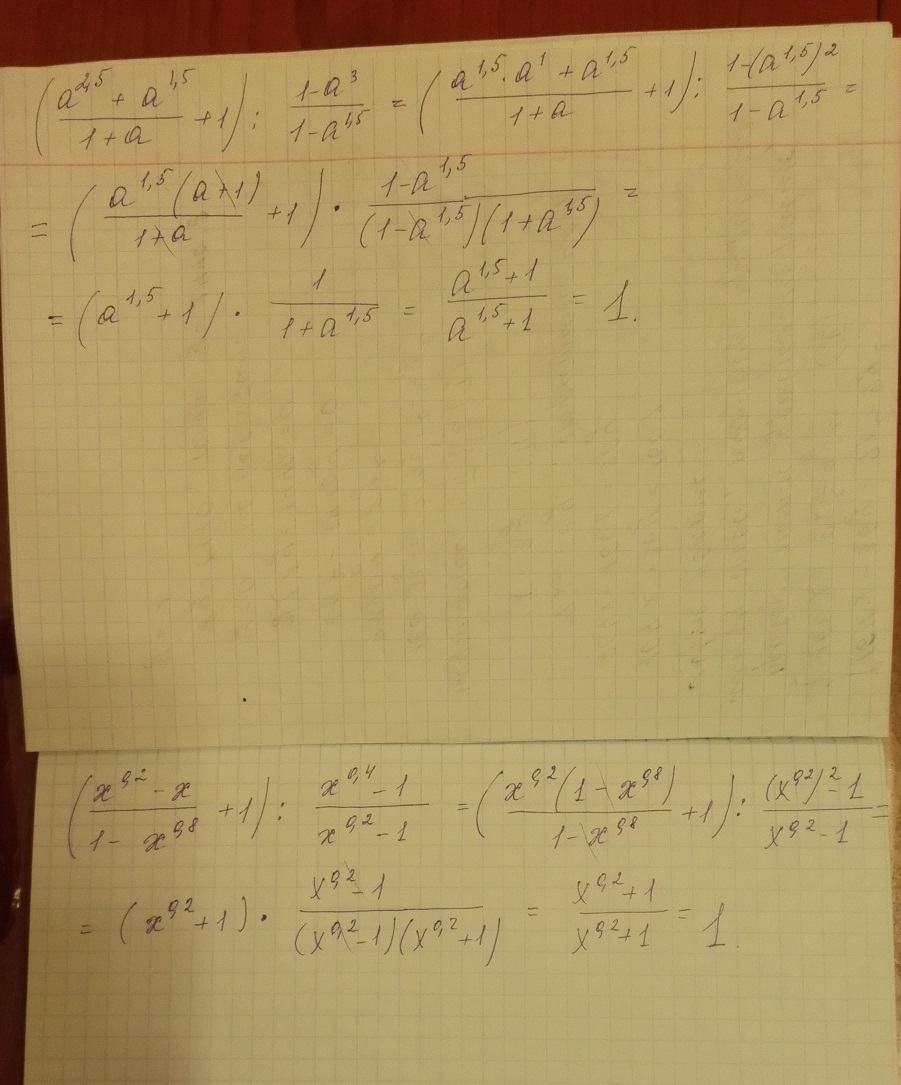 (a^2,5 + a^1,5 / 1+a + 1) : 1-a^3 / 1-a^1,5 = (a^1,5 · a^1 + a^1,5 / 1+a + 1) : 1-(a^1,5)^2 / 1-a^1,5 =
= (a^1,5 (a+1) / 1+a + 1) · 1-a^1,5 / (1-a^1,5)(1+a^1,5) =
= (a^1,5 + 1) · 1 / 1+a^1,5 = a^1,5+1 / a^1,5+1 = 1.
(x^0,2 - x / 1 - x^0,8 + 1) : x^0,4 - 1 / x^0,2 - 1 = (x^0,2 (1 - x^0,8) / 1 - x^0,8 + 1) : (x^0,2)^2 - 1 / x^0,2 - 1 =
= (x^0,2 + 1) · x^0,2 - 1 / (x^0,2 - 1)(x^0,2 + 1) = x^0,2 + 1 / x^0,2 + 1 = 1.